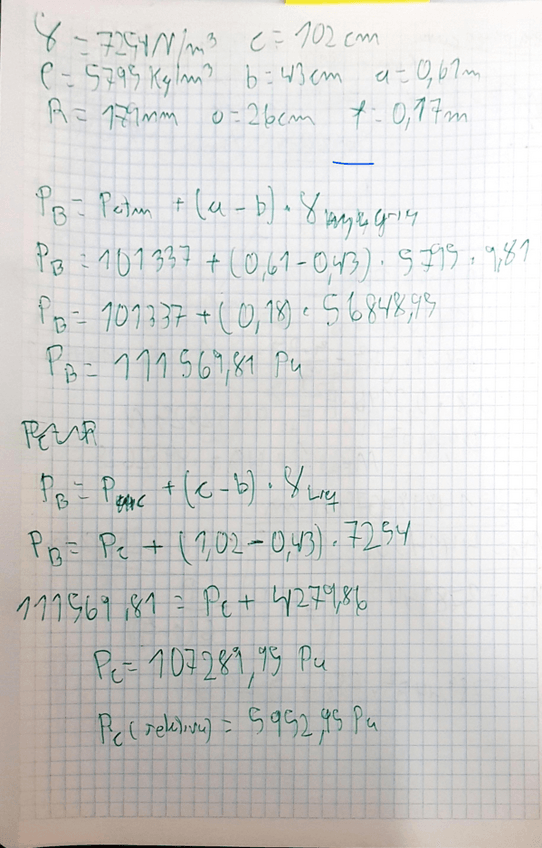 γ = 7254N/m³ c = 102 cm
ρ = 5795 Kg/m³ b = 43cm a = 0,61m
R = 179mm o = 26cm f = 0,17m
P_B = Patm + (a - b) · γ
P_B = 101337 + (0,61 - 0,43) · 5795 · 9,81
P_B = 101337 + (0,18) · 56848,95
P_B = 111569,81 Pa
P_B = P + (c - b) · γ Liq
P_B = P_c + (1,02 - 0,43) · 7254
111569,81 = P_c + 4279,86
P_c = 107289,95 Pa
P_c (relativa) = 5952,95 Pa